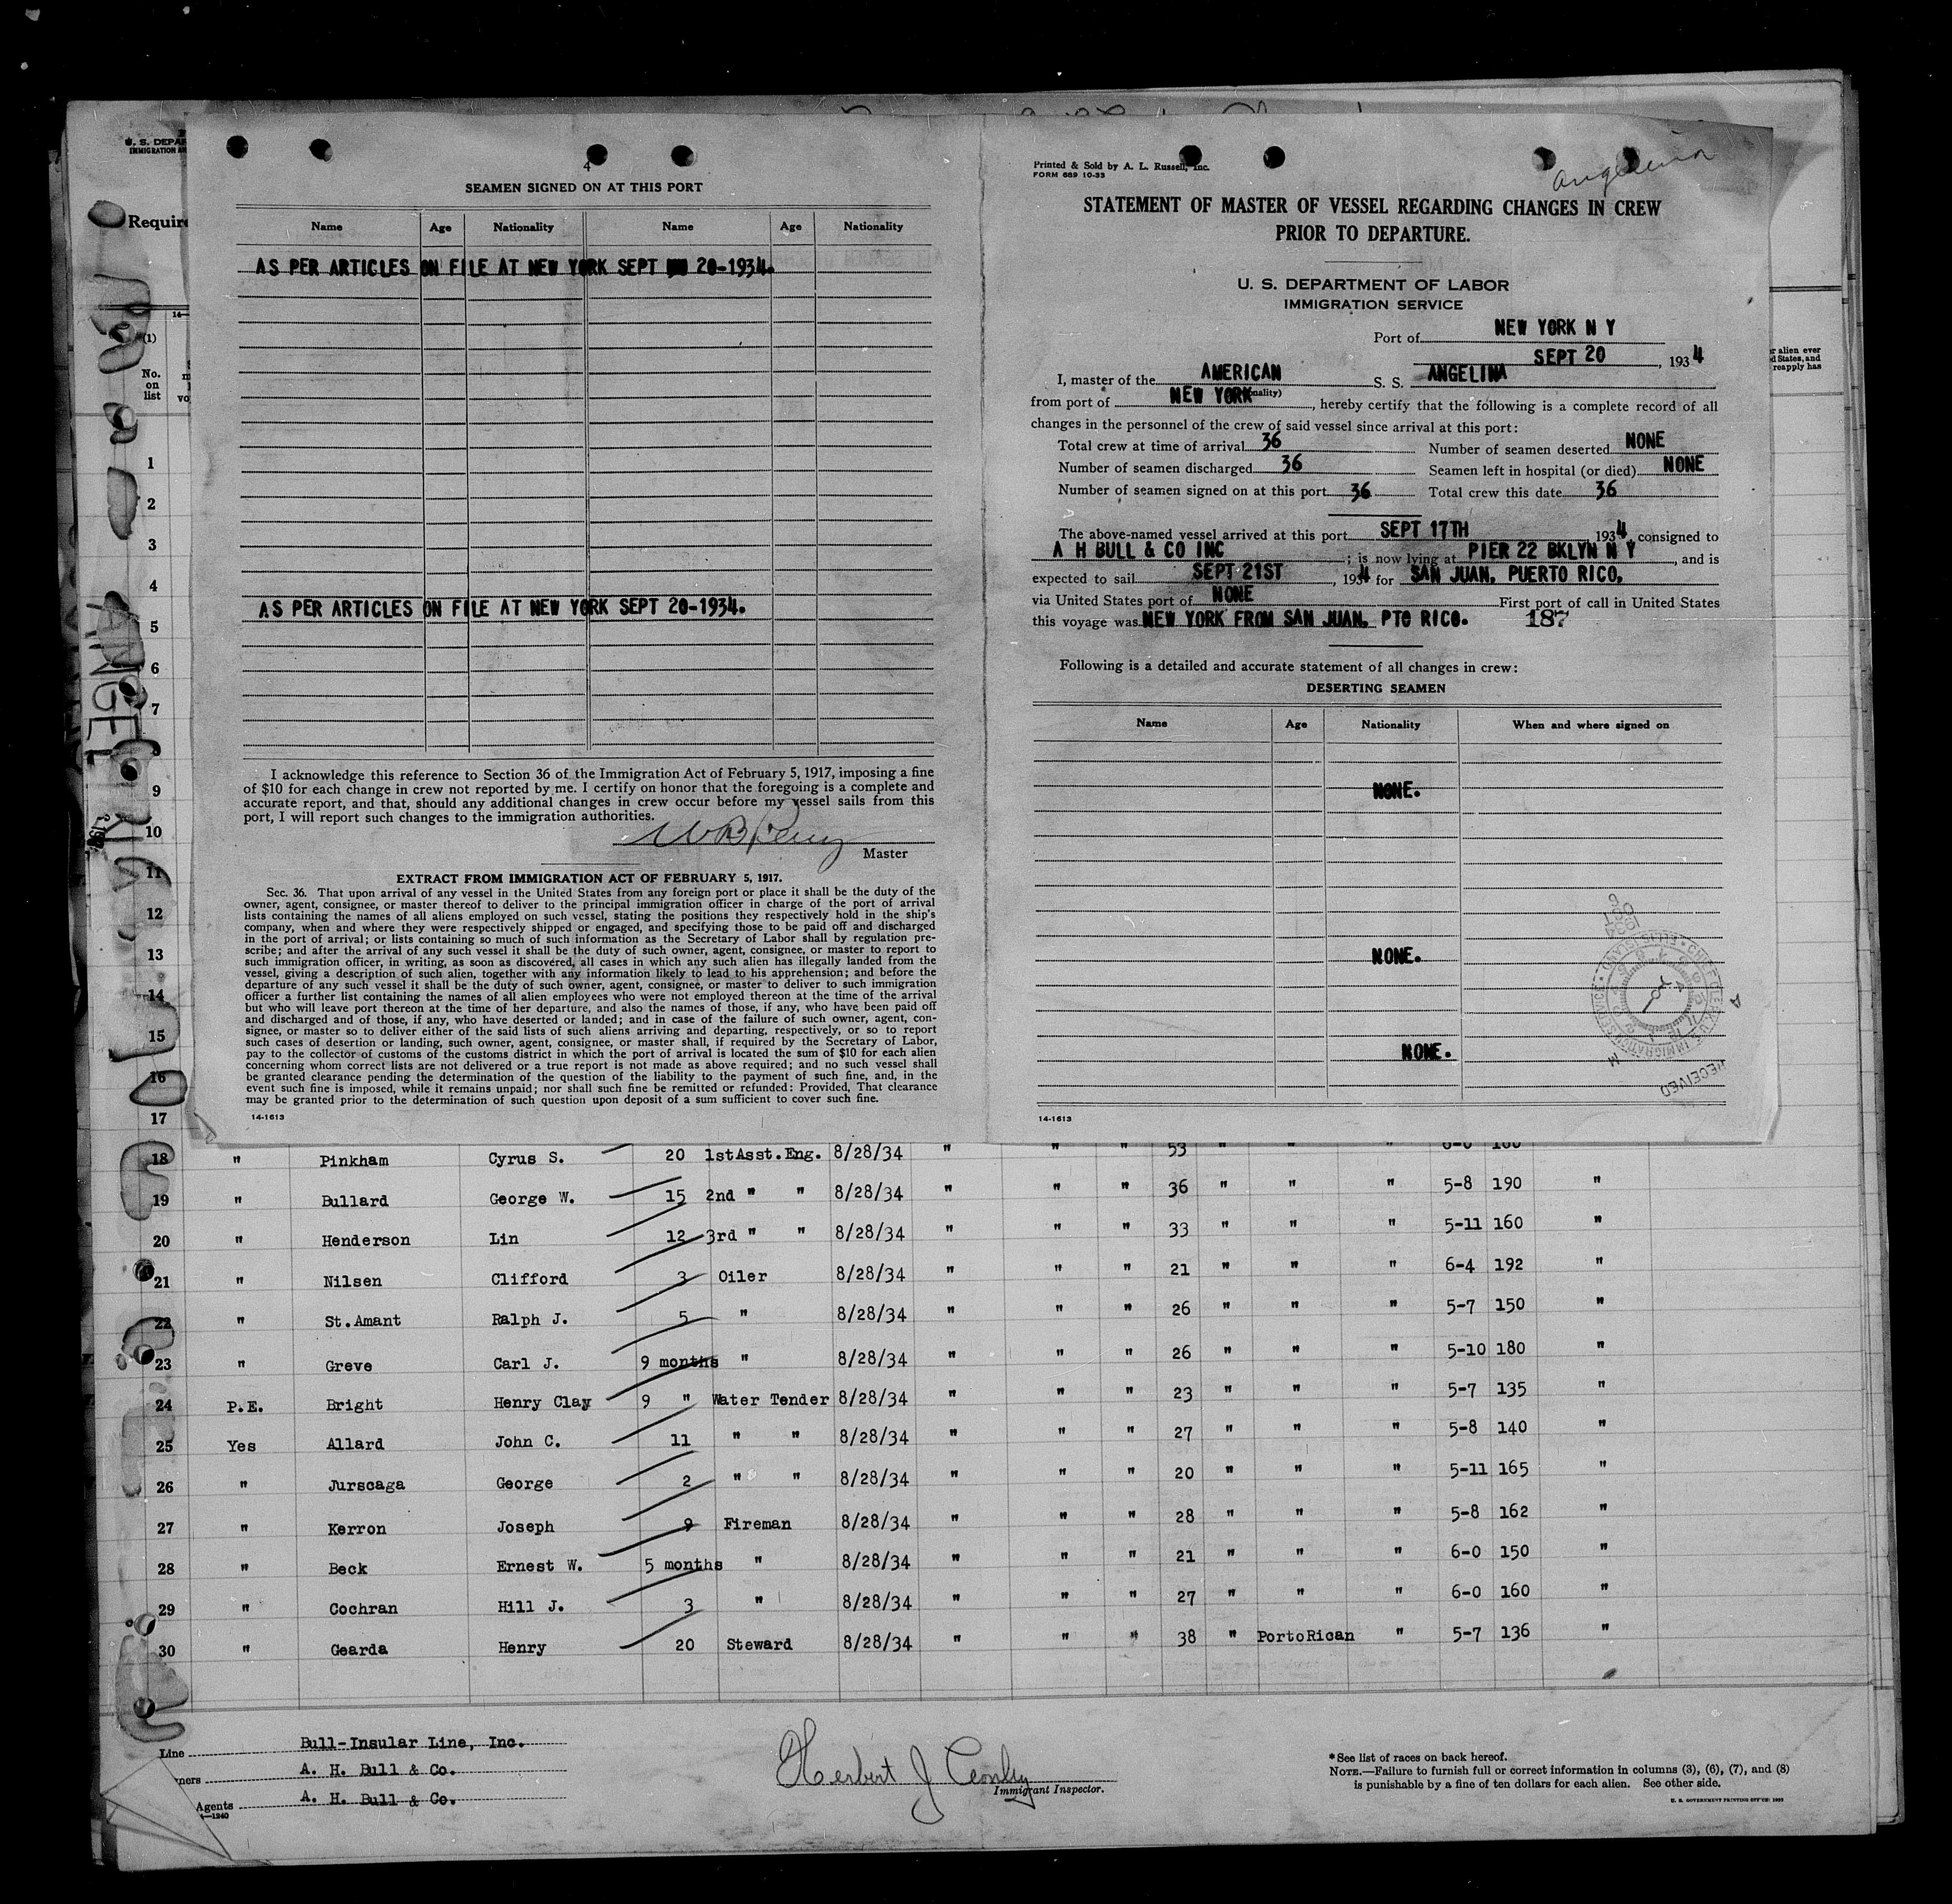 U. S. DEPAR
IMMIGRATION AN
Require
(1)
No.
on
list
4
SEAMEN SIGNED ON AT THIS PORT
Name Age Nationality Name Age Nationality
AS PER ARTICLES ON FILE AT NEW YORK SEPT 20-1934.
AS PER ARTICLES ON FILE AT NEW YORK SEPT 20-1934.
I acknowledge this reference to Section 36 of the Immigration Act of February 5, 1917, imposing a fine
of $10 for each change in crew not reported by me. I certify on honor that the foregoing is a complete and
accurate report, and that, should any additional changes in crew occur before my vessel sails from this
port, I will report such changes to the immigration authorities.
Master
EXTRACT FROM IMMIGRATION ACT OF FEBRUARY 5, 1917.
Sec. 36. That upon arrival of any vessel in the United States from any foreign port or place it shall be the duty of the
owner, agent, consignee, or master thereof to deliver to the principal immigration officer in charge of the port of arrival
lists containing the names of all aliens employed on such vessel, stating the positions they respectively hold in the ship's
company, when and where they were respectively shipped or engaged, and specifying those to be paid off and discharged
in the port of arrival; or lists containing so much of such information as the Secretary of Labor shall by regulation pre-
scribe; and after the arrival of any such vessel it shall be the duty of such owner, agent, consignee, or master to report to
such immigration officer, in writing, as soon as discovered, all cases in which any such alien has illegally landed from the
vessel, giving a description of such alien, together with any information likely to lead to his apprehension; and before the
departure of any such vessel it shall be the duty of such owner, agent, consignee, or master to deliver to such immigration
officer a further list containing the names of all alien employees who were not employed thereon at the time of the arrival
but who will leave port thereon at the time of her departure, and also the names of those, if any, who have been paid off
and discharged and of those, if any, who have deserted or landed; and in case of the failure of such owner, agent, con-
signee, or master so to deliver either of the said lists of such aliens arriving and departing, respectively, or so to report
such cases of desertion or landing, such owner, agent, consignee, or master shall, if required by the Secretary of Labor,
pay to the collector of customs of the customs district in which the port of arrival is located the sum of $10 for each alien
concerning whom correct lists are not delivered or a true report is not made as above required; and no such vessel shall
be granted clearance pending the determination of the question of the liability to the payment of such fine, and, in the
event such fine is imposed, while it remains unpaid; nor shall such fine be remitted or refunded: Provided, That clearance
may be granted prior to the determination of such question upon deposit of a sum sufficient to cover such fine.
14-1613
Printed & Sold by A. L. Russell, Inc.
FORM 689 10-33
Angelina
STATEMENT OF MASTER OF VESSEL REGARDING CHANGES IN CREW
PRIOR TO DEPARTURE.
U. S. DEPARTMENT OF LABOR
IMMIGRATION SERVICE
Port of NEW YORK N Y
SEPT 20, 1934
I, master of the AMERICAN S. S. ANGELINA
from port of NEW YORK, hereby certify that the following is a complete record of all
changes in the personnel of the crew of said vessel since arrival at this port:
Total crew at time of arrival 36 Number of seamen deserted NONE
Number of seamen discharged 36 Seamen left in hospital (or died) NONE
Number of seamen signed on at this port 36 Total crew this date 36
The above-named vessel arrived at this port SEPT 17TH 1934, consigned to
A H BULL & CO INC; is now lying at PIER 22 BKLYN N Y, and is
expected to sail SEPT 21ST, 1934 for SAN JUAN, PUERTO RICO,
via United States port of NONE First port of call in United States
this voyage was NEW YORK FROM SAN JUAN, PTO RICO. 187
Following is a detailed and accurate statement of all changes in crew:
DESERTING SEAMEN
Name Age Nationality When and where signed on
NONE.
NONE.
NONE.
RECEIVED
14-1613
r alien ever
d States, and
reapply has
1
2
3
4
5
6
7
8
9
10
11
12
13
14
15
16
17
18 " Pinkham Cyrus S. 20 1stAsst.Eng. 8/28/34 " " " 53 " " " 6-0 160
19 " Bullard George W. 15 2nd " " 8/28/34 " " " 36 " " " 5-8 190 "
20 " Henderson Lin 12 3rd " " 8/28/34 " " " 33 " " " 5-11 160 "
21 " Nilsen Clifford 3 Oiler 8/28/34 " " " 21 " " " 6-4 192 "
22 " St.Amant Ralph J. 5 " 8/28/34 " " " 26 " " " 5-7 150 "
23 " Greve Carl J. 9 months " 8/28/34 " " " 26 " " " 5-10 180 "
24 P.E. Bright Henry Clay 9 " Water Tender 8/28/34 " " " 23 " " " 5-7 135 "
25 Yes Allard John C. 11 " " 8/28/34 " " " 27 " " " 5-8 140 "
26 " Jurscaga George 2 " " 8/28/34 " " " 20 " " " 5-11 165 "
27 " Kerron Joseph 9 Fireman 8/28/34 " " " 28 " " " 5-8 162 "
28 " Beck Ernest W. 5 months " 8/28/34 " " " 21 " " " 6-0 150 "
29 " Cochran Hill J. 3 " 8/28/34 " " " 27 " " " 6-0 160 "
30 " Gearda Henry 20 Steward 8/28/34 " " " 38 " PortoRican " 5-7 136 "
Line Bull-Insular Line, Inc.
ners A. H. Bull & Co.
Agents A. H. Bull & Co.
Herbert J
Immigrant Inspector.
*See list of races on back hereof.
NOTE.—Failure to furnish full or correct information in columns (3), (6), (7), and (8)
is punishable by a fine of ten dollars for each alien. See other side.